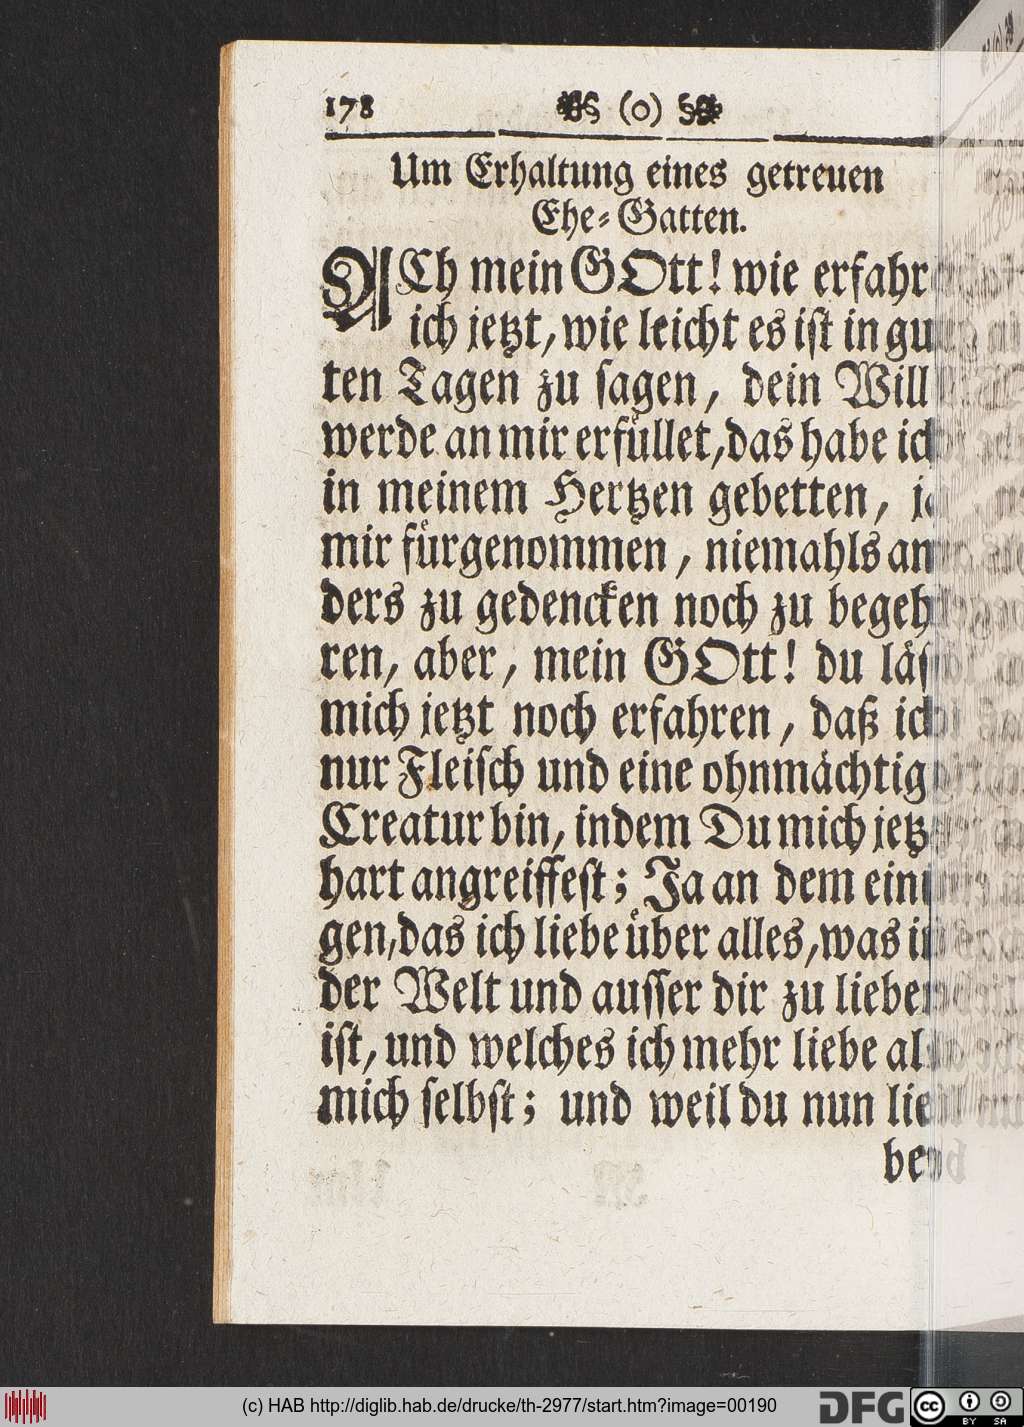 178 (o)
Um Erhaltung eines getreuen
Ehe-Gatten.
ACh mein GOtt! wie erfahr
ich jetzt, wie leicht es ist in gu
ten Tagen zu sagen, dein Will
werde an mir erfüllet, das habe ich
in meinem Hertzen gebetten, ja
mir fürgenommen, niemahls an
ders zu gedencken noch zu begeh
ren, aber, mein GOtt! du läs
mich jetzt noch erfahren, daß ich
nur Fleisch und eine ohnmächtig
Creatur bin, indem Du mich jetz
hart angreiffest; Ja an dem eini
gen, das ich liebe über alles, was in
der Welt und ausser dir zu lieben
ist, und welches ich mehr liebe als
mich selbst; und weil du nun lie
ben
(c) HAB http://diglib.hab.de/drucke/th-2977/start.htm?image=00190
DFG
cc
BY SA